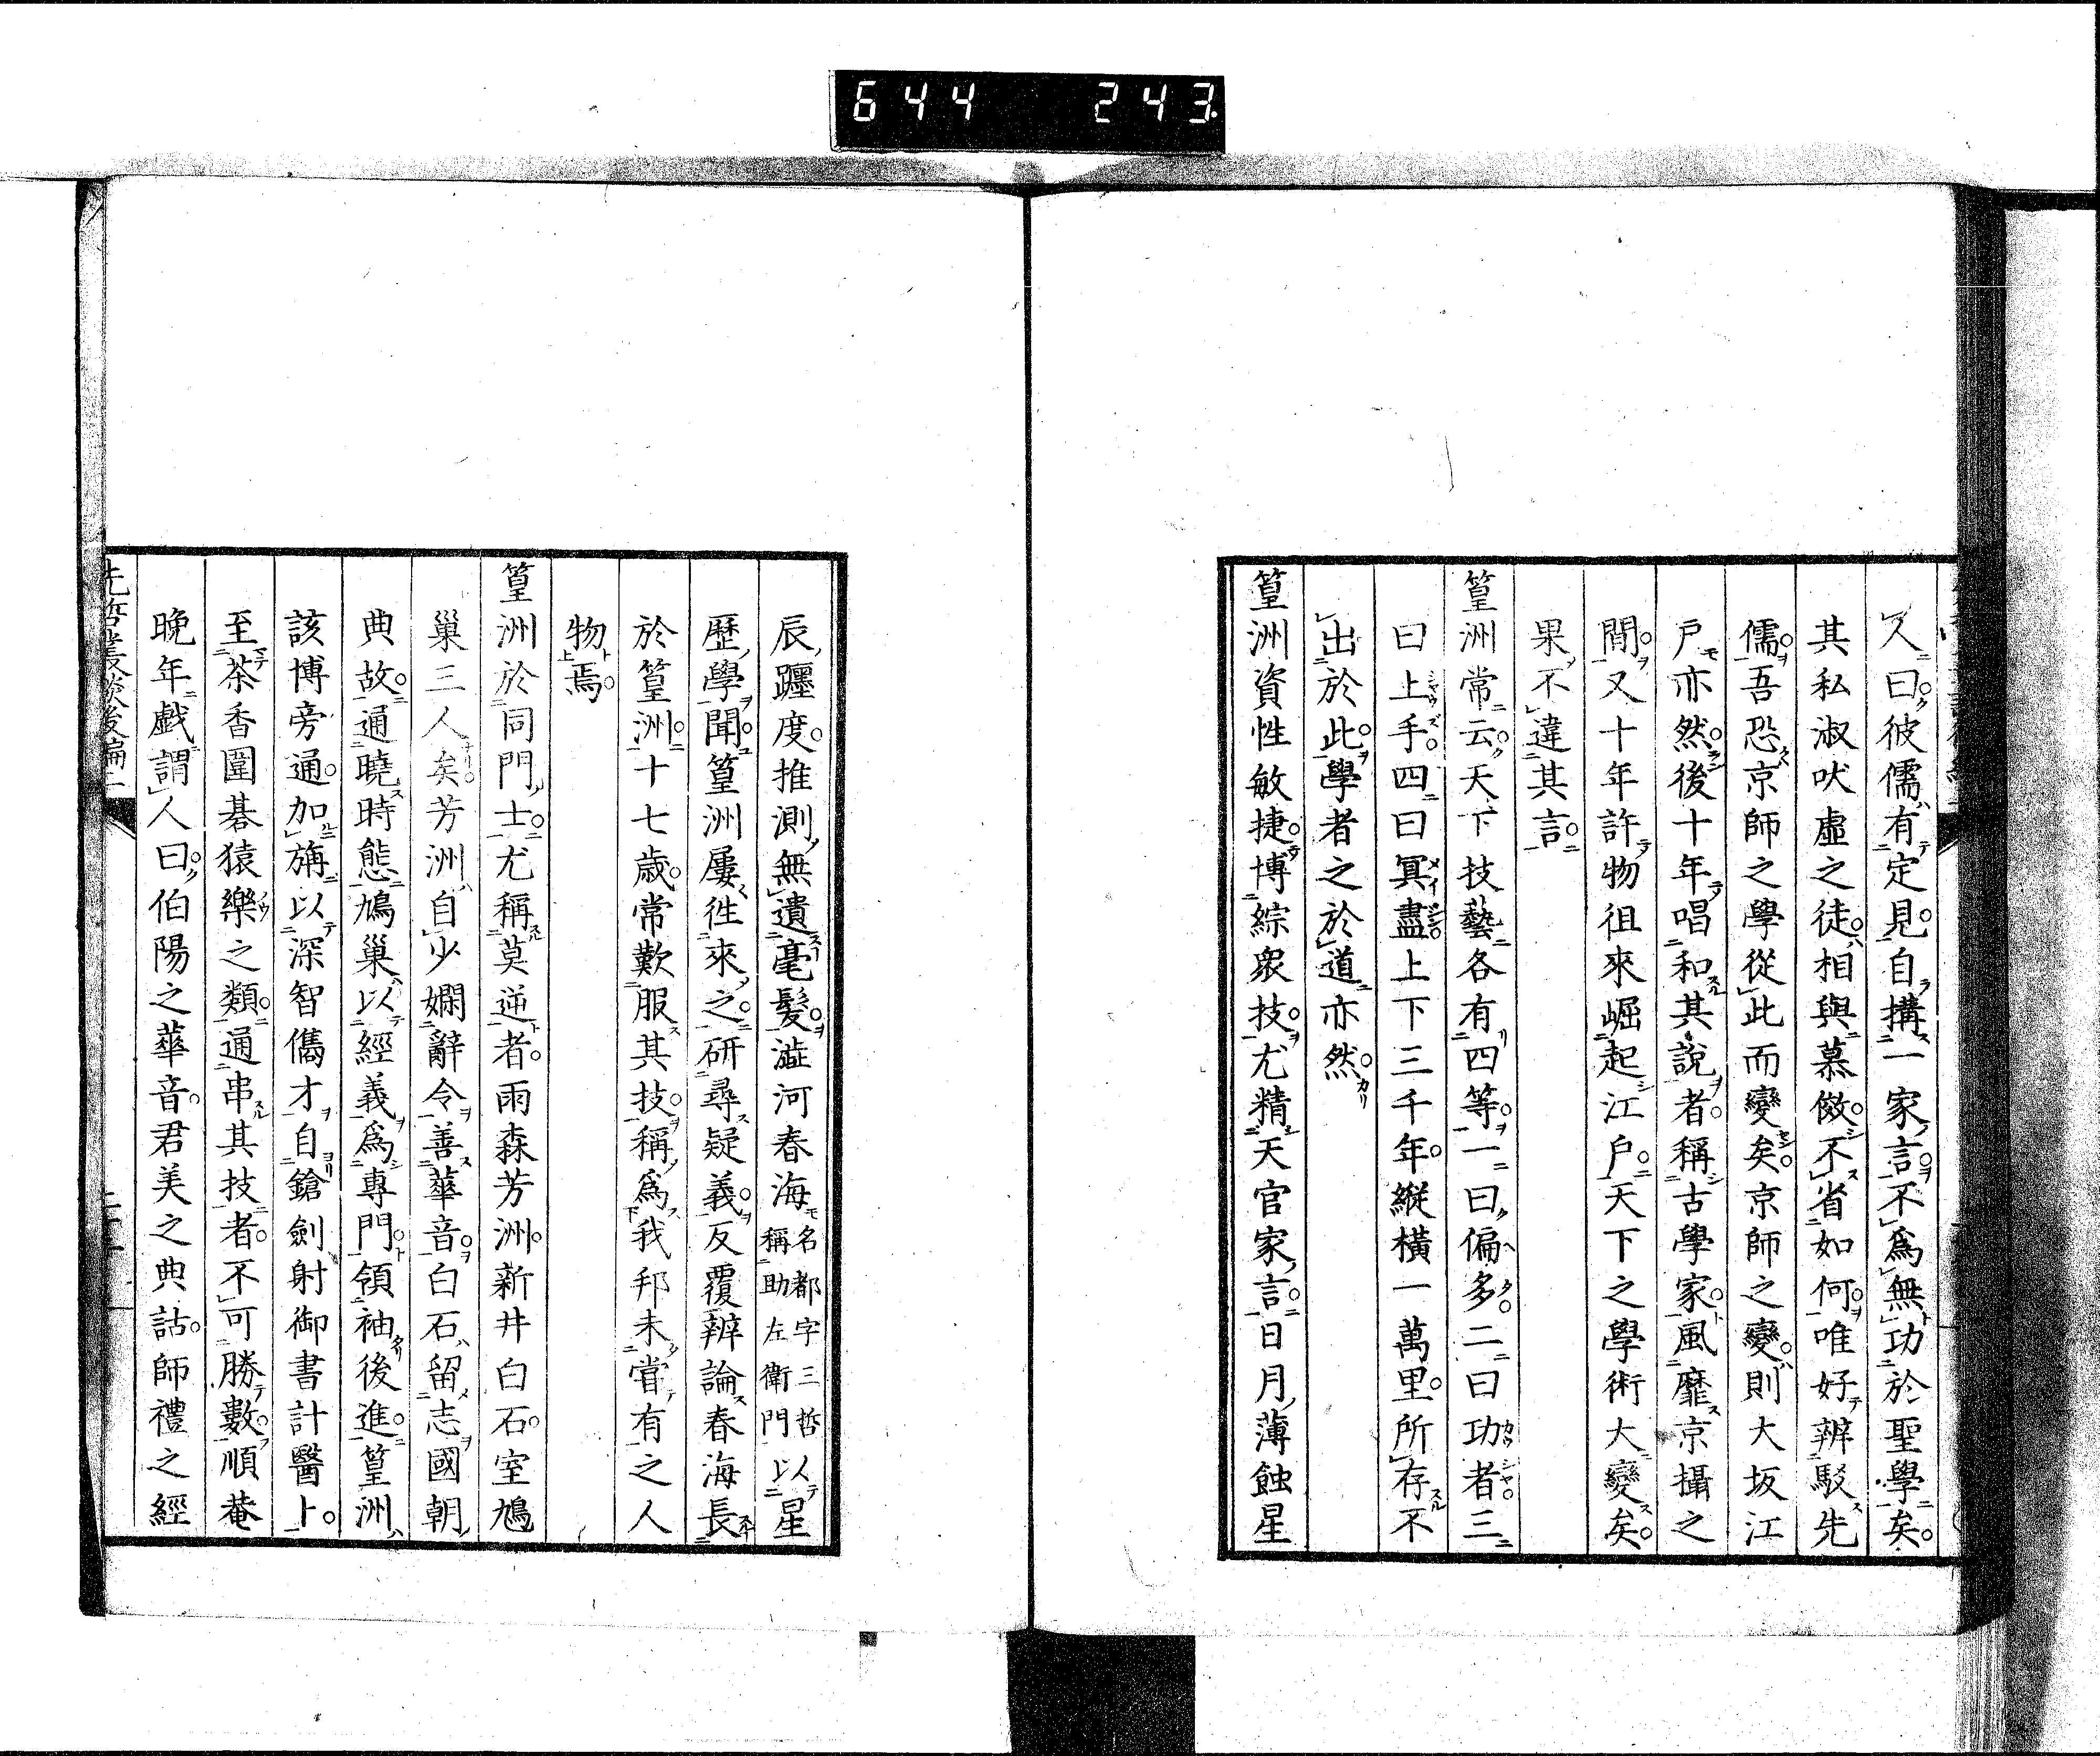 644 243
人曰彼儒有定見自搆一家言不爲無功於聖學矣
其私淑吠虛之徒相與慕傚不省如何唯好辨駁先
儒吾恐京師之學從此而變矣京師之變則大坂江
戶亦然後十年唱和其說者稱古學家風靡京攝之
間又十年許物徂來崛起江戶天下之學術大變矣
果不違其言
篁洲常云天下技藝各有四等一曰偏多二曰功者三
曰上手四曰冥盡上下三千年縱橫一萬里所存不
出於此學者之於道亦然
篁洲資性敏捷博綜衆技尤精天官家言日月薄蝕星
辰躔度推測無遺毫髮澁河春海名都字三哲稱助左衛門以星
歷學聞篁洲屢徃來之研尋疑義反覆辨論春海長
於篁洲十七歲常歎服其技稱爲我邦未嘗有之人
物焉
篁洲於同門士尤稱莫逆者雨森芳洲新井白石室鳩
巢三人矣芳洲自少嫻辭令善華音白石留志國朝
典故通曉時態鳩巢以經義爲專門領袖後進篁洲
該博旁通加旃以深智儁才自鎗劍射御書計醫卜
至茶香圍碁猿樂之類通串其技者不可勝數順菴
晚年戲謂人曰伯陽之華音君美之典詁師禮之經
先哲叢談後編二